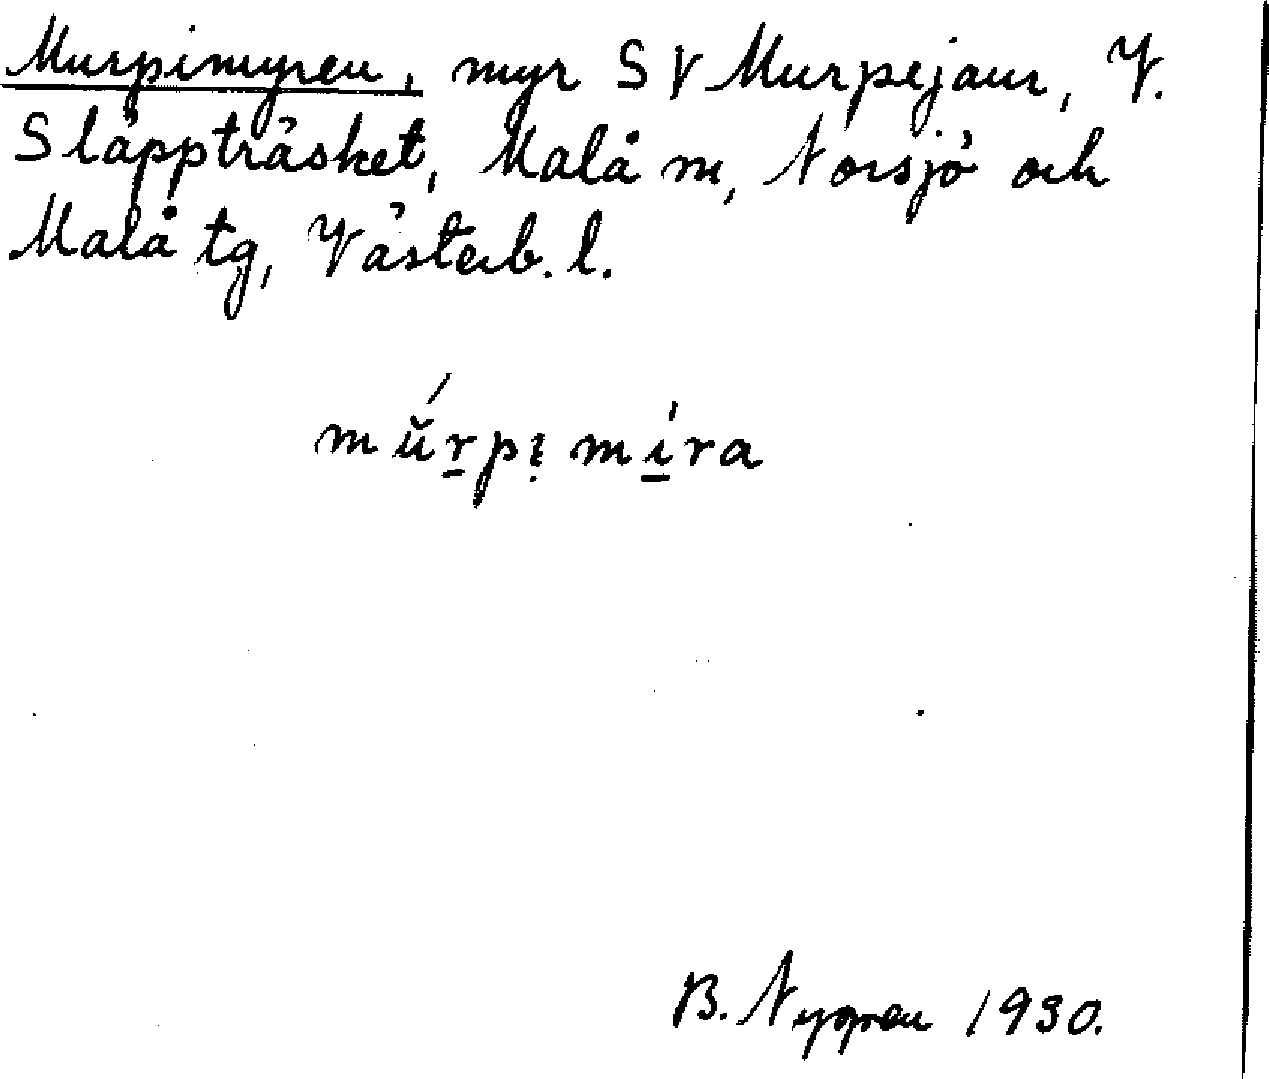 Murpimyren, myr SV Murpejaur, V.
Släppträsket, Malå m, Norsjö och
Malå tg, Västerb. l.
mŭ́r̠pı̣ mí̠ra
B. Nygren 1930.